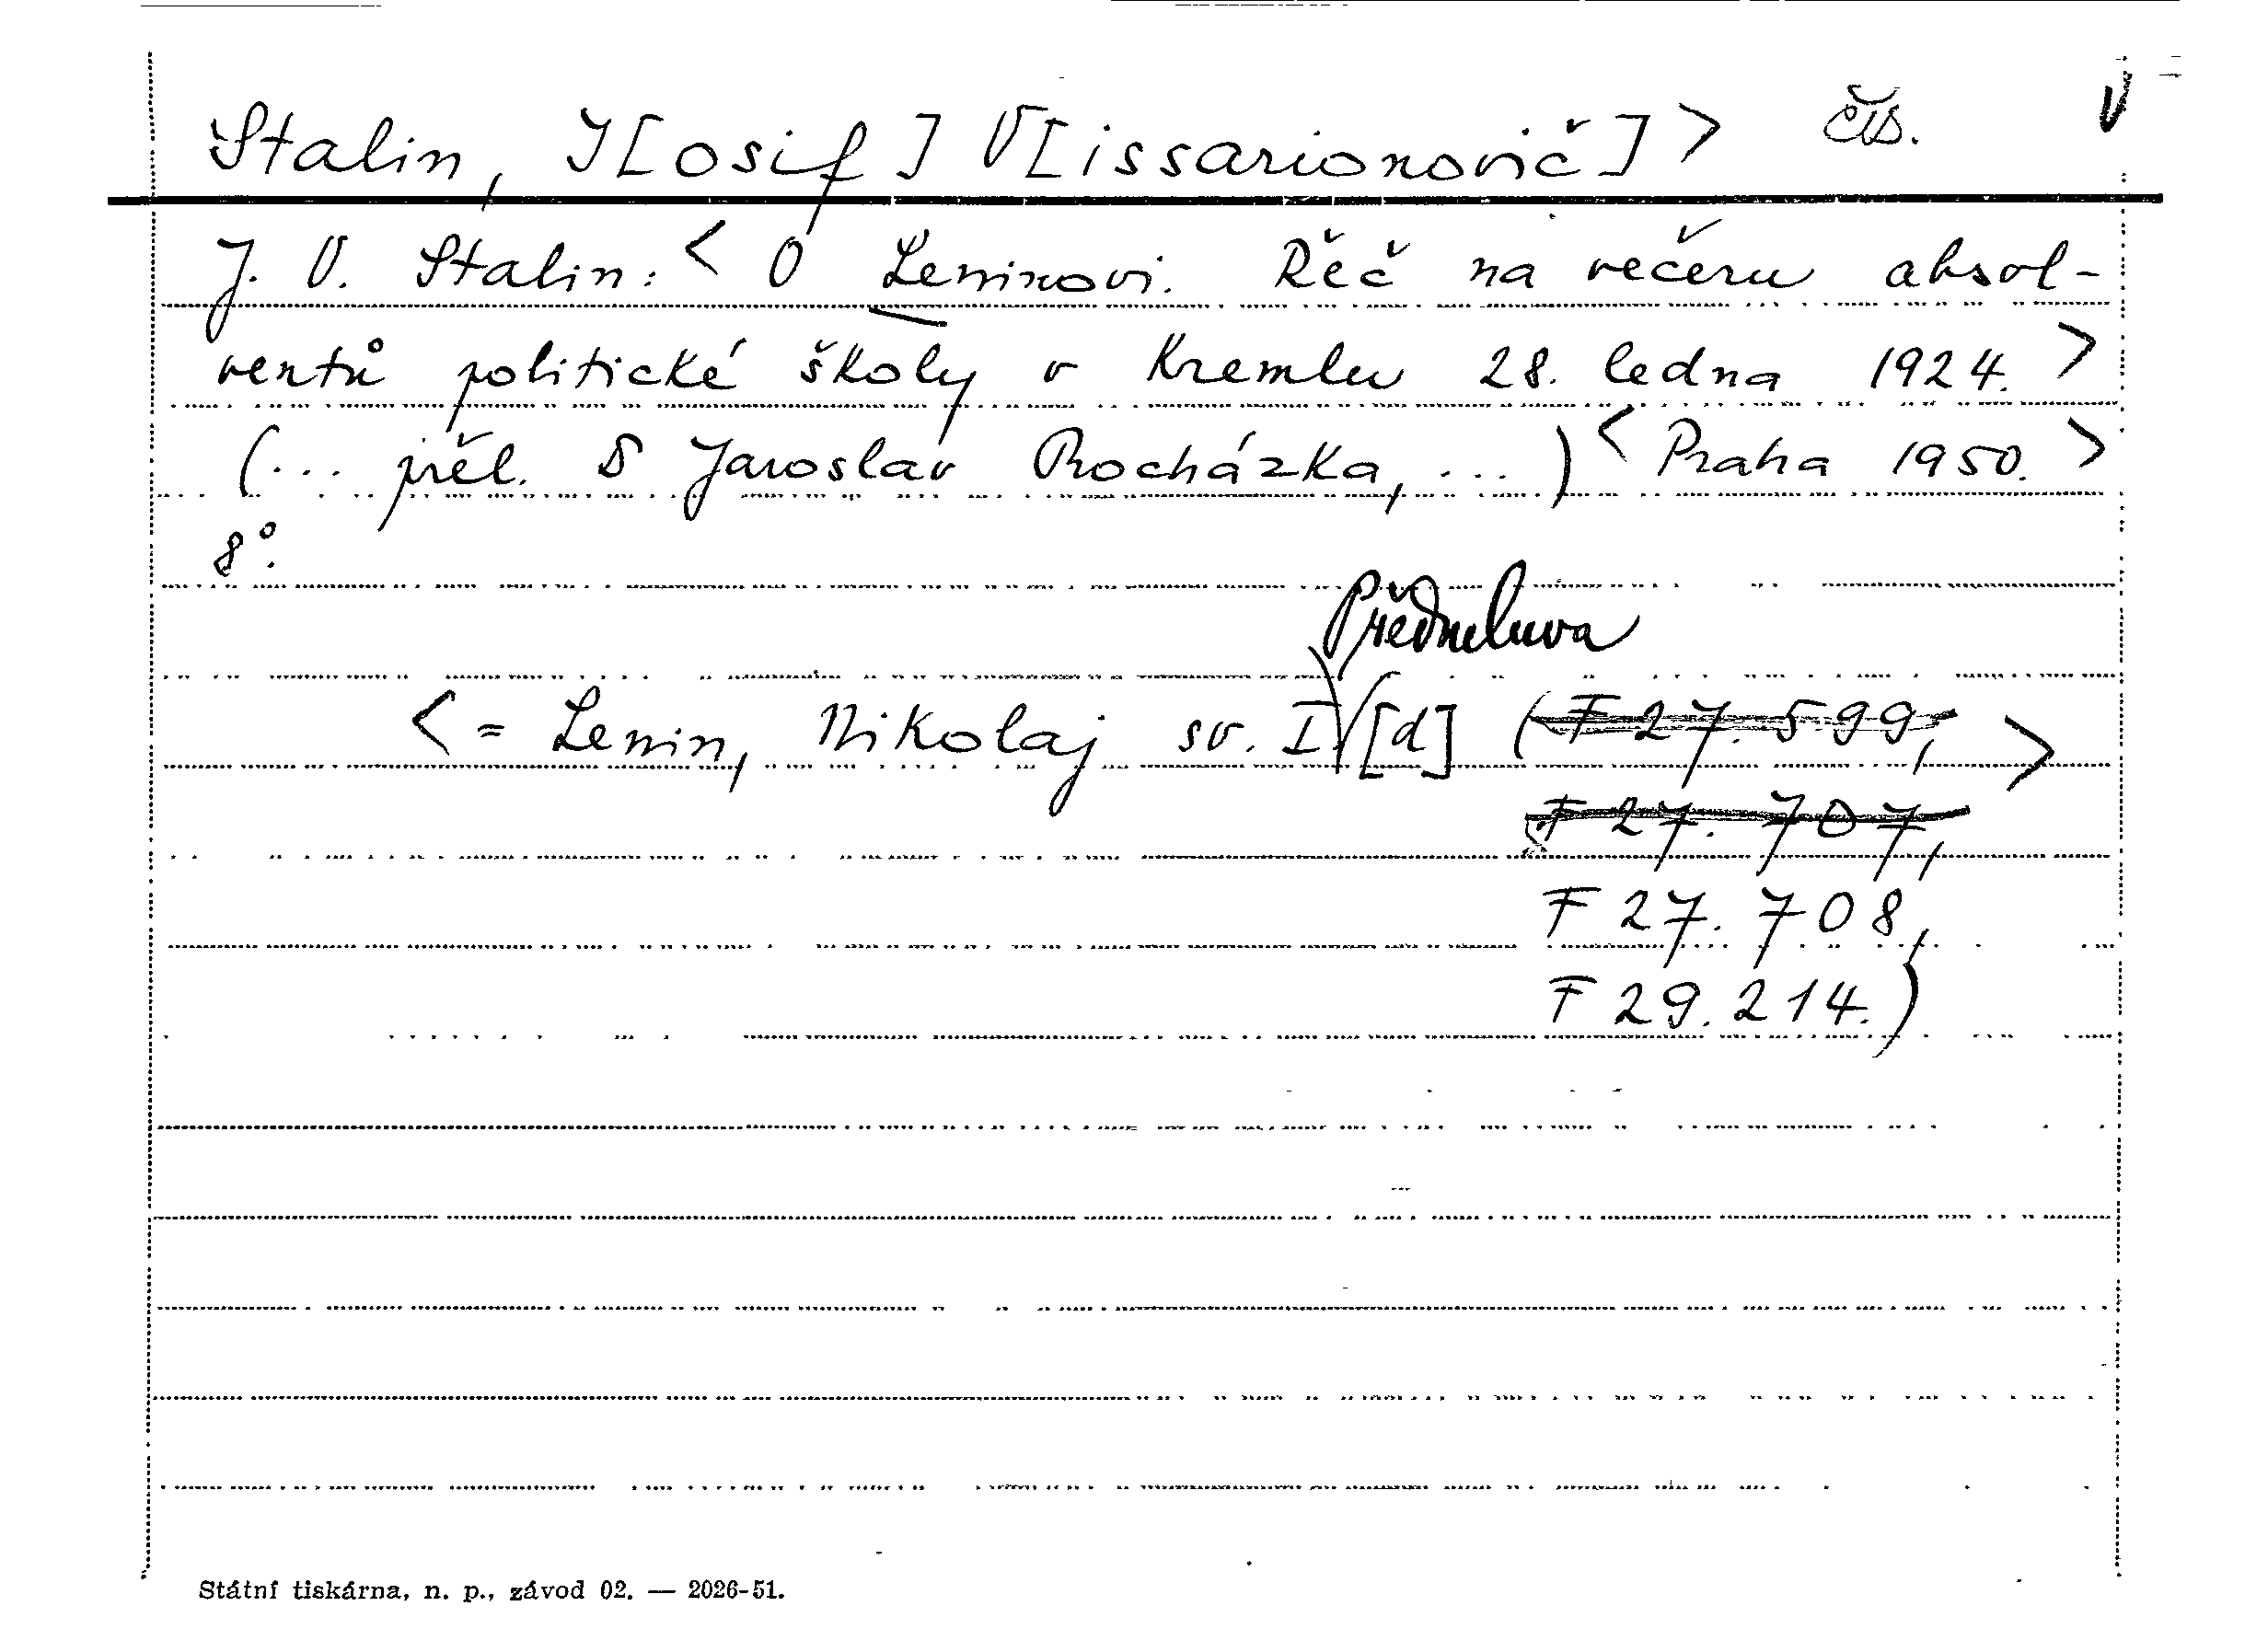 Stalin, J[osif] V[issarionovič] > čís. V
J. V. Stalin: < O Leninovi. Řeč na večeru absol-
ventů politické školy v Kremlu 28. ledna 1924. >
(... přel. Jaroslav Procházka, ...) < Praha 1950. >
8°.
Předmluva
< = Lenin, Nikolaj sv. I. [d] (F 27.599, >
F 27.707,
F 27.708,
F 29.214.)
Státní tiskárna, n. p., závod 02. — 2026-51.